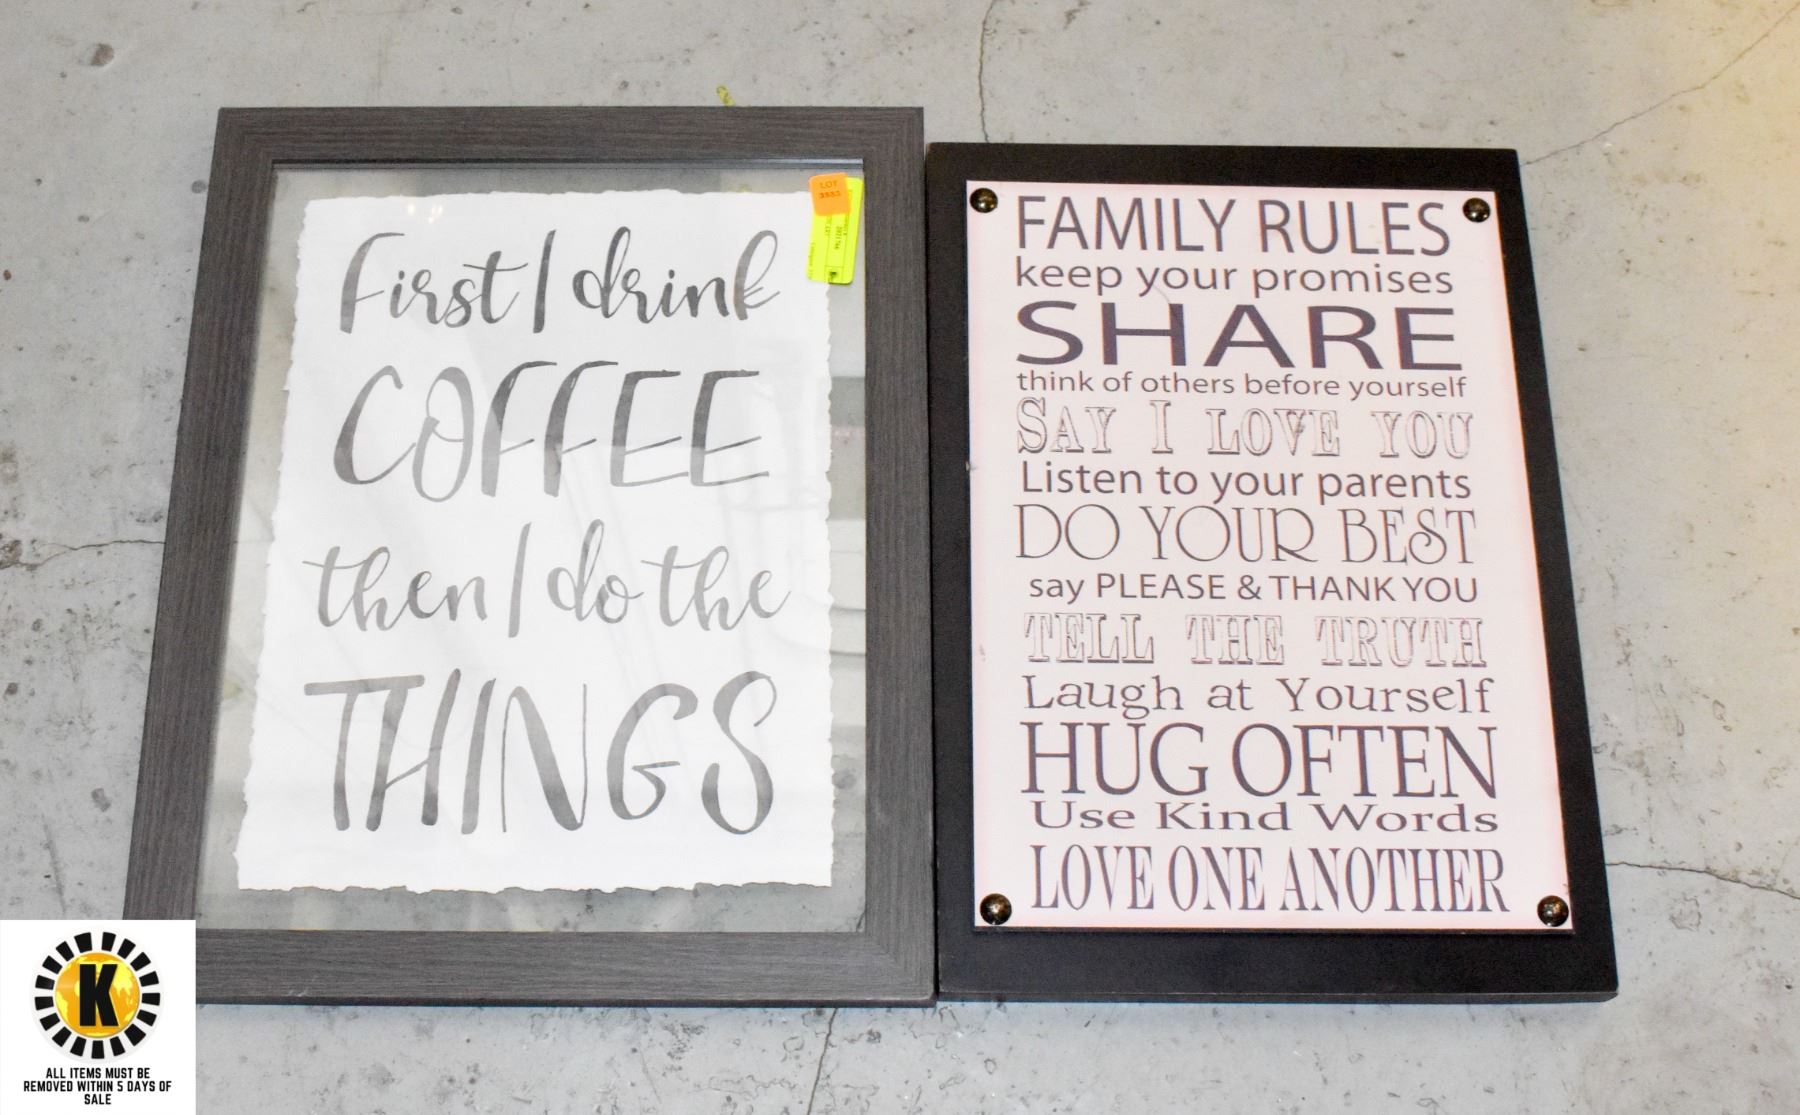 First I drink
COFFEE
then I do the
THINGS
LOT
FAMILY RULES
keep your promises
SHARE
think of others before yourself
SAY I LOVE YOU
Listen to your parents
DO YOUR BEST
say PLEASE & THANK YOU
TELL THE TRUTH
Laugh at Yourself
HUG OFTEN
Use Kind Words
LOVE ONE ANOTHER
K
ALL ITEMS MUST BE
REMOVED WITHIN 5 DAYS OF
SALE